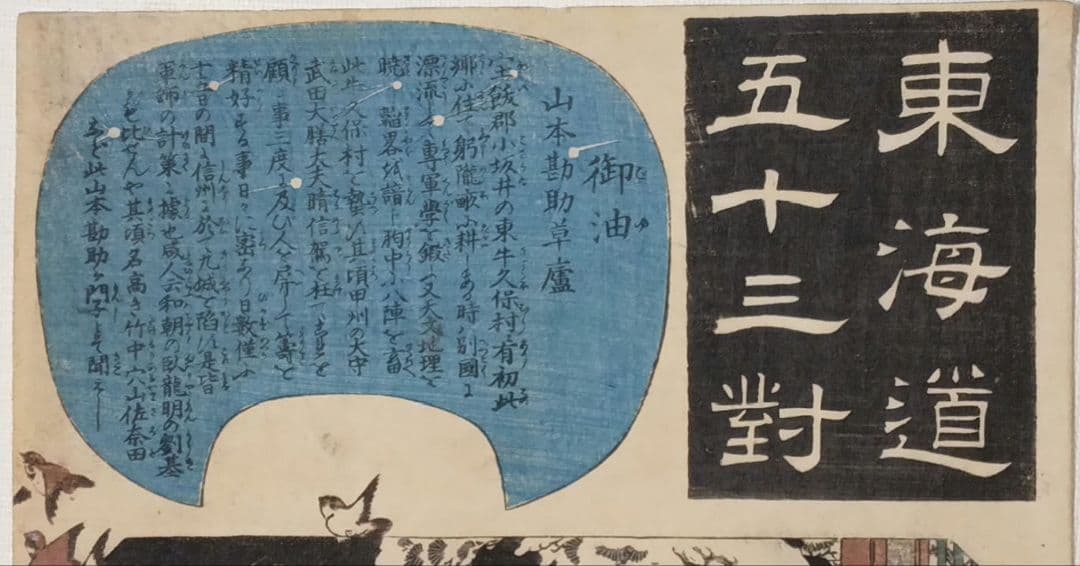 東海道
五十三對
御油
山本勘助草廬
宝飯郡小坂井の東牛久保村に有初此
郷に住て躬隴畝に耕しある時は別國に
漂流して専軍學を鍛ひ又天文地理を
暁し韜畧を諳じ胸中に八陣を畜
此牛久保村に蟄い其頃田州の太守
武田大膳大夫晴信駕を枉て草を
顧る事三度に及び人を屏けて籌を
精好する事日々に密あり日數僅に
十五日の間に信州に於て九城を陷いるは是皆
軍師の計策に據也咸人六和朝の臥龍明の劉基
にも比せんや其頃名高き竹中穴山佐奈田
など此山本勘助が門子とぞ聞えし